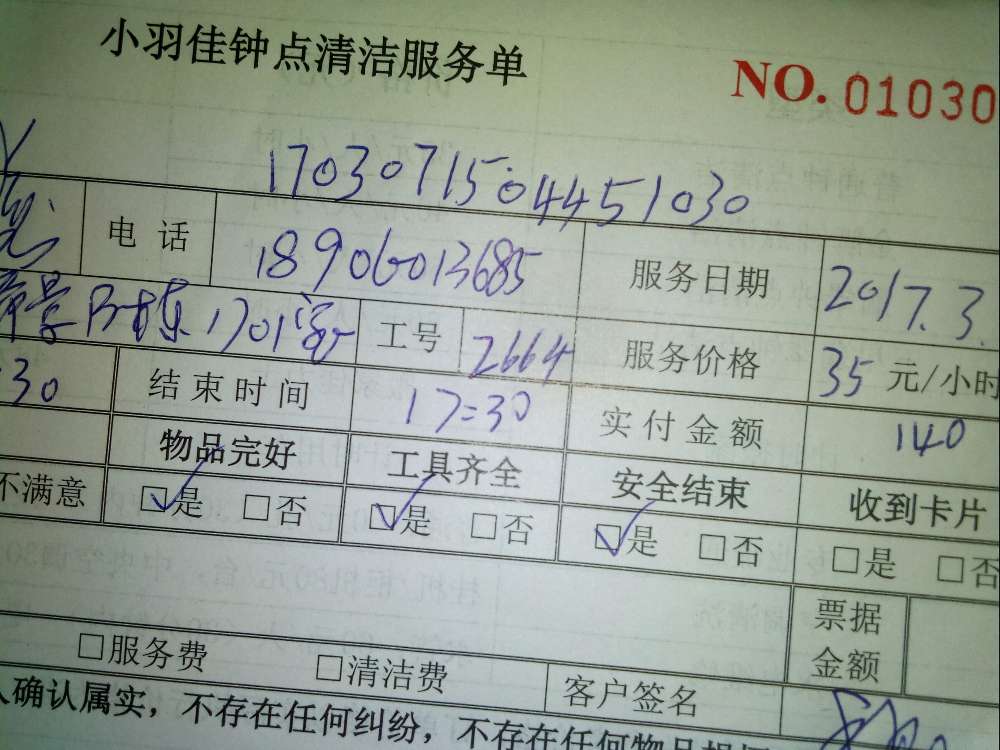 小羽佳钟点清洁服务单
NO. 01030
17030715044451030
电 话 18906013685 服务日期 2017.3.
B栋1701室 工号 2664 服务价格 35 元/小时
:30 结 束 时 间 17:30 实 付 金 额 140
物品完好 工具齐全 安全结束 收到卡片
不满意 ☑是 □否 ☑是 □否 ☑是 □否 □是 □否
票据
金额
□服务费 □清洁费 客户签名
人确认属实，不存在任何纠纷，不存在任何物品损